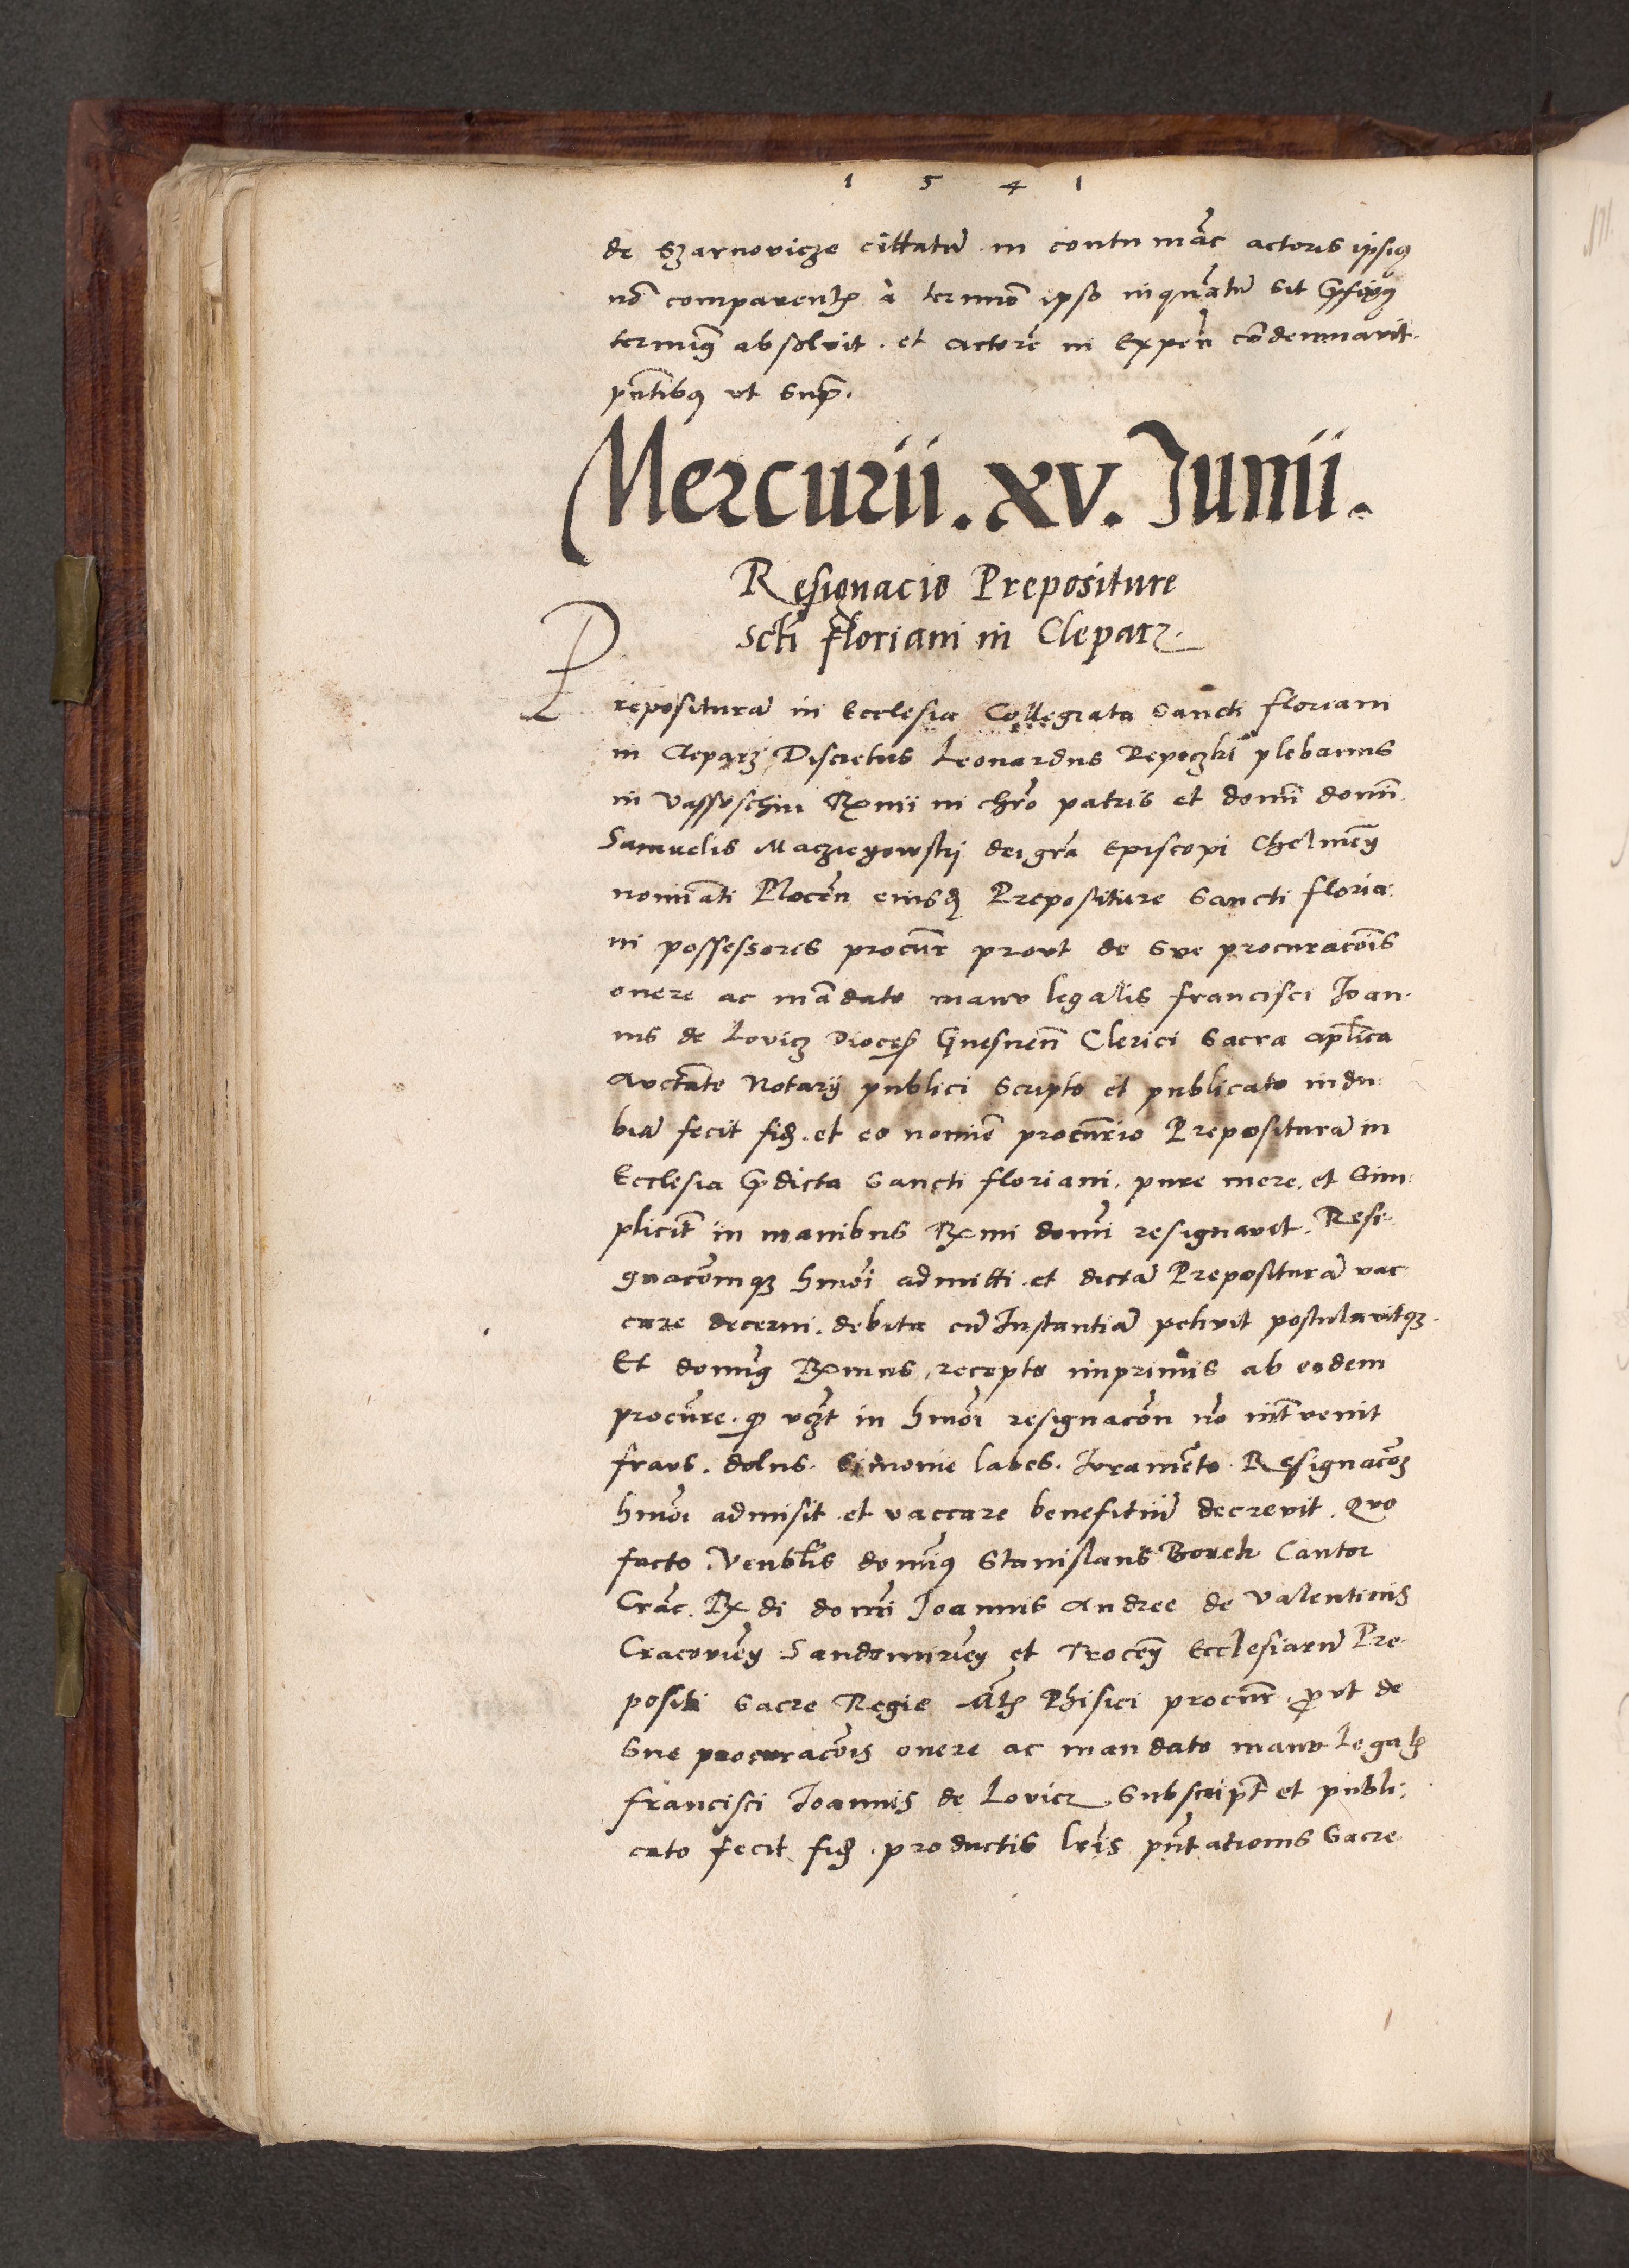 1 5 4 1
de Szarnovicze cittatu̅ in contumac̅ actoris ipsius
no̅ comparent̅ a termi̅o ipso inqua̅tu̅ sit p̅fixus
termi̅us absolvit . et actore̅ in Expen̅ co̅demnavit .
pn̅tibus ut supra̅ .
Mercurii . XV . Junii .
Resignacio Prepositure
Scti̅ Floriani in Cleparz
Preposituram̅ in Ecclesia Collegiata Sancti Floriani
in Cleparz Discretus Leonardus Repeczki plebanus
in Rx̅mi in chr̅o patris et domi̅ domi̅
Samuelis Maczieyowskij dei gr̅a Episcopi Chelmen̅
nomi̅ati Plocen̅ eiusd̅ Prepositure Sancti Floria
ni possessoris procu̅r prout de sue procurac̅o̅is
onere ac ma̅dato manu legalis Francisci Joan
nis de Lovicz Dioces̅ Gnesnen̅ Clerici Sacra ap̅lica
Auct̅ate Notarij publici scripto et publicato indu
biam̅ fecit fid̅ . et eo nomi̅e procur̅io Prepositura̅ in
Ecclesia p̅dicta Sancti Floriani . pure mere . et sim
plicit̅ in manibus Rx̅mi domi̅ resignavit . Resi
gnac̅o̅mq̅ hmo̅i admitti . et dictam̅ Prepositura̅ vac
care decerni . debita cu̅ Instantia̅ petivit postulavitq̅ .
Et domi̅us Rx̅mus , recepto inprimis ab eodem
procur̅e . q̅ vz̅t in hmo̅i resignac̅o̅n no̅ int̅venit
fraus . dolus . Simonie labes . Juramen̅to Resignac̅o̅m
hmo̅i admisit et vaccare benefitiu̅ decrevit . Quo
facto . Venbl̅is domi̅us Stanislaus Borek Cantor
Crac̅ . Rx̅di domi̅ Joannis Andree de Valentinis
Cracovien̅ Sandomirien̅ et Trocen̅ Ecclesiaru̅ Pre
positi Sacre Regie M̅t̅ Phisici procu̅r . p̅ut de
Sue procurac̅o̅is onere ac mandato manu legal̅
Francisci Joannis de Lovicz Subscript̅ et publi
cato fecit fid̅ . productis lr̅is pn̅tationis Sacre